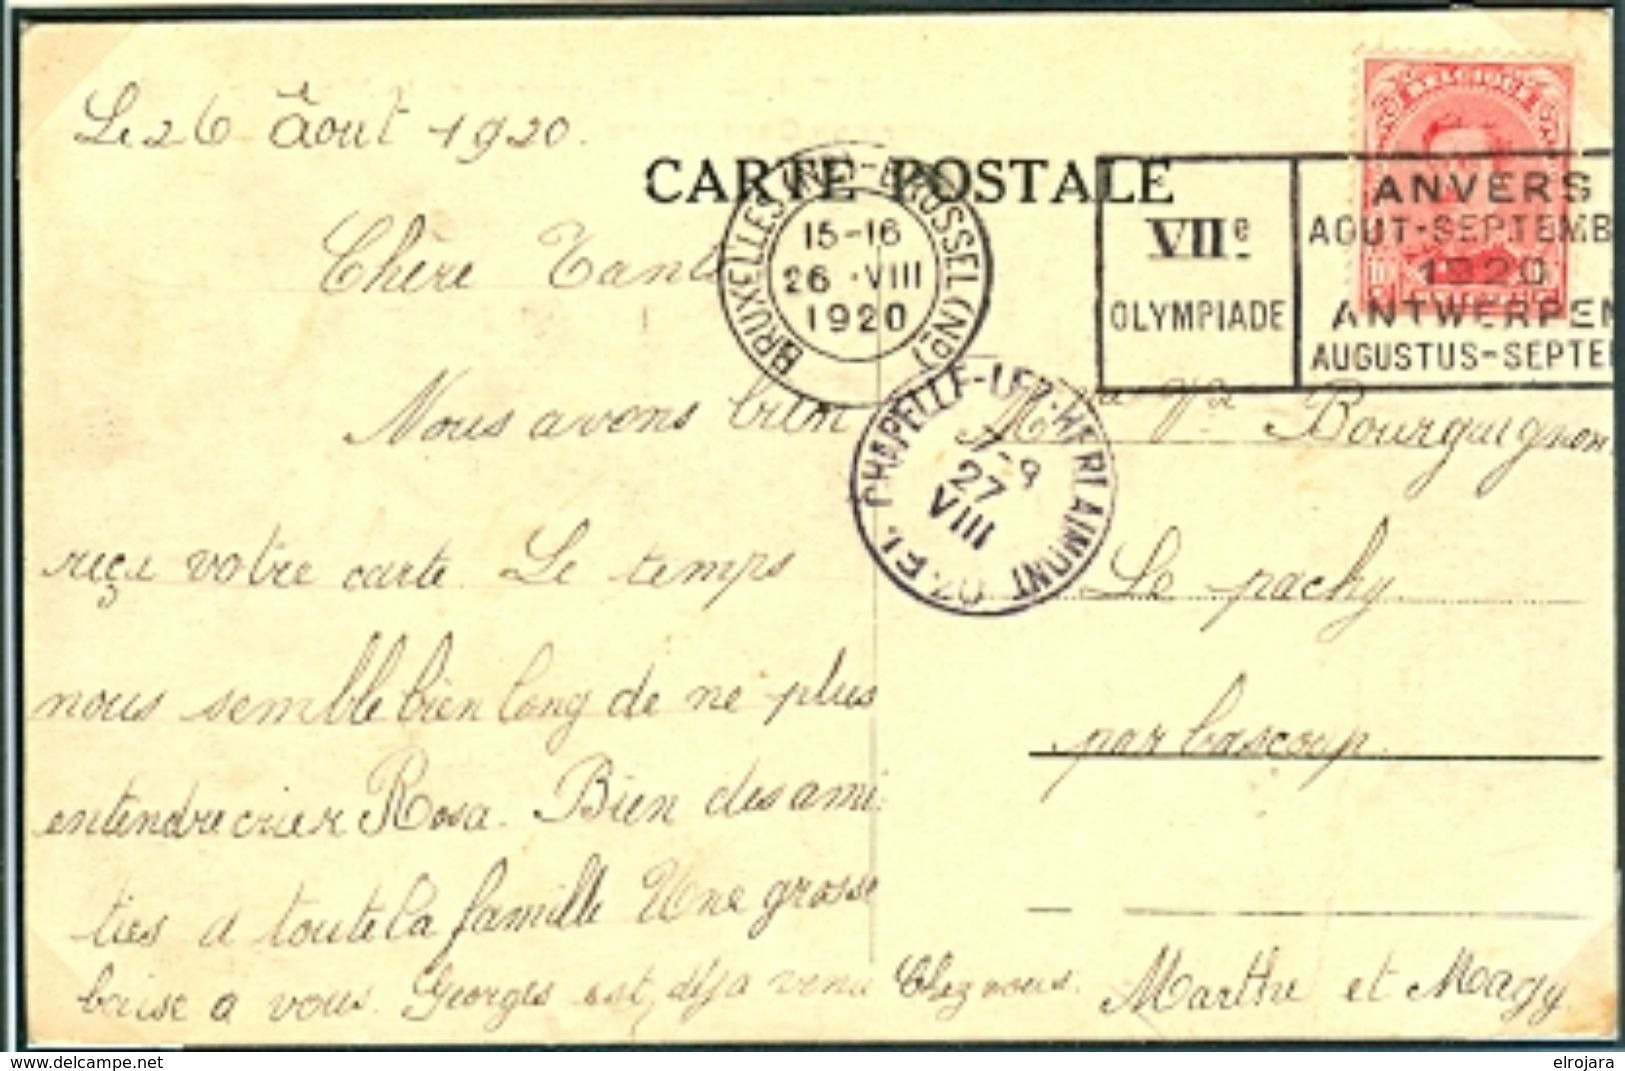 Le 26 Août 1920.
CARTE POSTALE
BELGIQUE
BRUXELLES (Nd)-BRUSSEL (Nd)
15-16
26 ·VIII
1920
VIIe
OLYMPIADE
ANVERS
AOUT-SEPTEMB
1920
ANTWERPEN
AUGUSTUS-SEPTE
Chère Tante
CHAPELLE-LEZ-HERLAIMONT
7-9
27
VIII
20
Nous avons bien
Vve Bourguignon
reçu votre carte. Le temps
Le pachy.
nous semble bien long de ne plus
par bascoup.
entendre crier Rosa. Bien des ami
ties a toute la famille Une grosse
baise a vous. Georges est déja venu Chez nous.
Marthe et Magy.
delcampe.net
elrojara